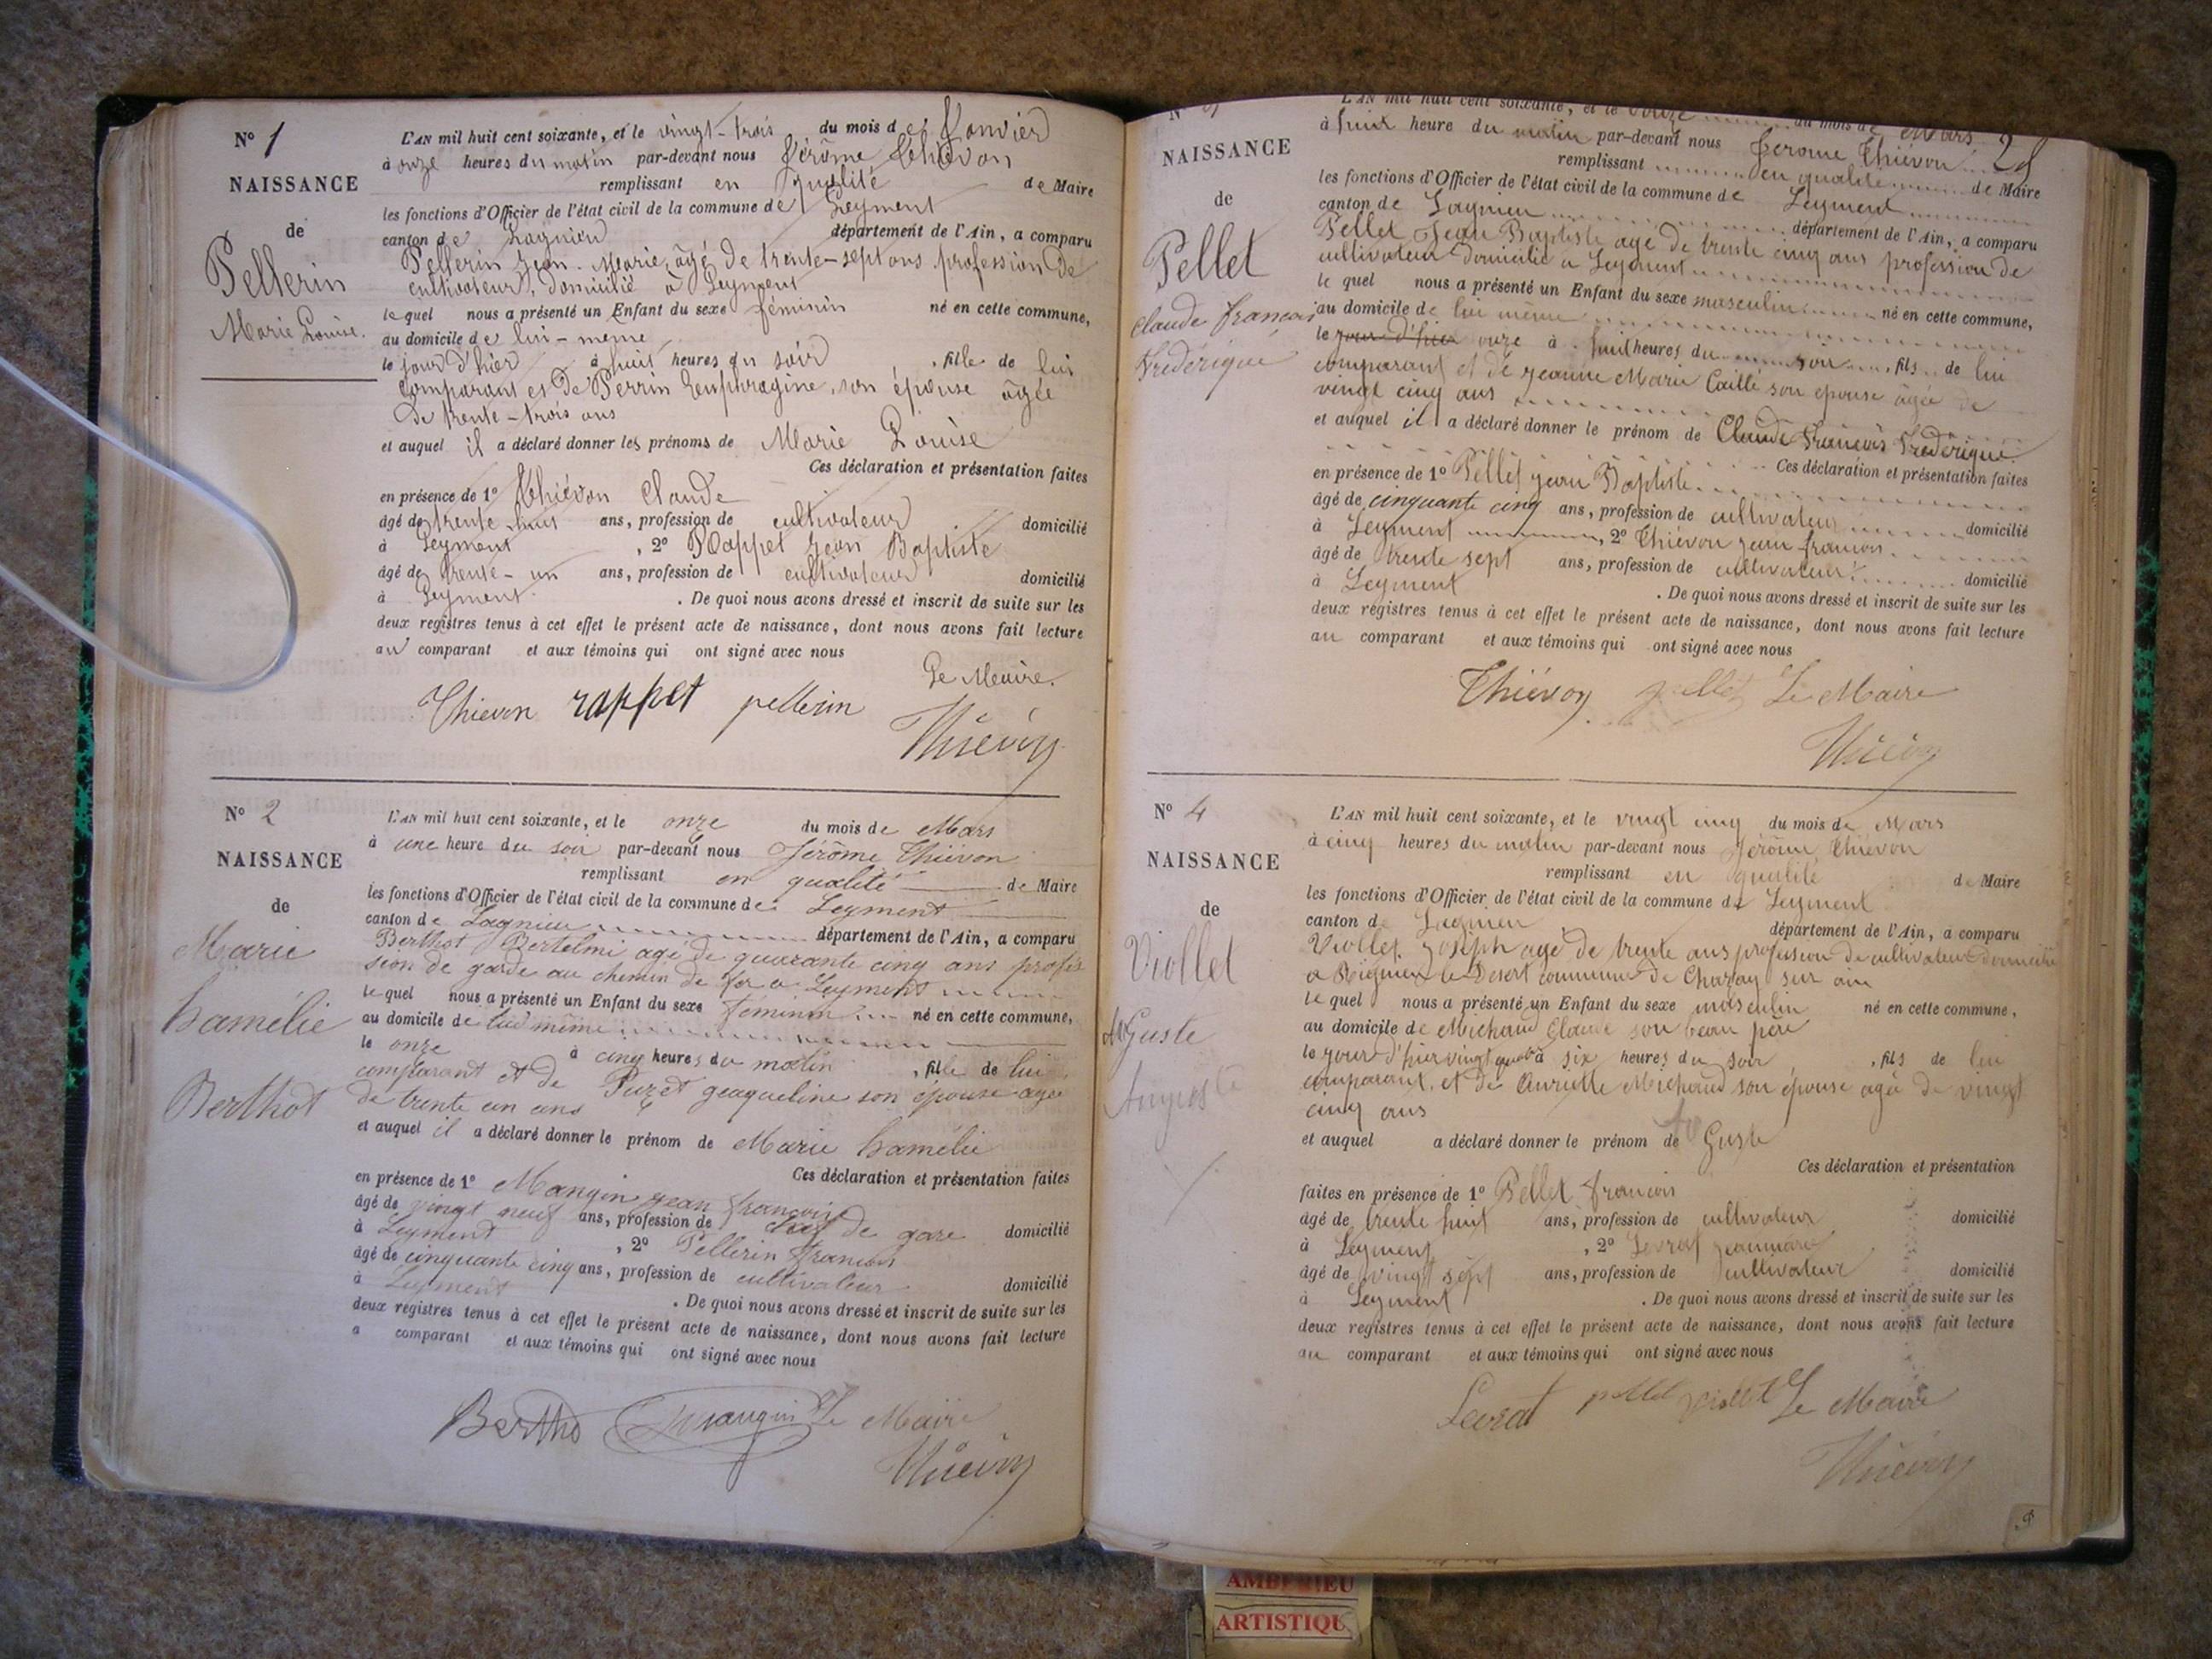 N° 1
NAISSANCE
de
Pellerin
Marie Louise.
L'AN mil huit cent soixante, et le vingt-trois du mois de Janvier
à onze heures du matin par-devant nous Jérôme Thiévon
remplissant en qualité de Maire
les fonctions d'Officier de l'état civil de la commune de Leyment
canton de Lagnieu département de l'Ain, a comparu
Pellerin Jean-Marie, âgé de trente-sept ans profession de
cultivateur, domicilié à Leyment
le quel nous a présenté un Enfant du sexe féminin né en cette commune,
au domicile de lui-même
le jour d'hier à huit heures du soir, fille de lui
comparant et de Perrin son épouse âgée
de trente-trois ans
et auquel il a déclaré donner les prénoms de Marie Louise
Ces déclaration et présentation faites
en présence de 1° Thiévon Claude
âgé de trente-huit ans, profession de cultivateur domicilié
à Leyment, 2° Rappet Jean Baptiste
âgé de trente-un ans, profession de cultivateur domicilié
à Leyment. De quoi nous avons dressé et inscrit de suite sur les
deux registres tenus à cet effet le présent acte de naissance, dont nous avons fait lecture
au comparant et aux témoins qui ont signé avec nous
Le Maire.
Thievon rappet pellerin
Thiévon
N° 2
NAISSANCE
de
Marie
hamélie
Berthot
L'AN mil huit cent soixante, et le onze du mois de Mars
à une heure du soir par-devant nous Jérôme Thiévon
remplissant en qualité de Maire
les fonctions d'Officier de l'état civil de la commune de Leyment
canton de Lagnieu département de l'Ain, a comparu
Berthot Bertelmi agé de quarante cinq ans profes
sion de garde au chemin de fer a Leyment
le quel nous a présenté un Enfant du sexe féminin né en cette commune,
au domicile de lui même
le onze à cinq heures du matin, fille de lui
comparant et de Puzet geaqueline son épouse agée
de trente un ans
et auquel il a déclaré donner le prénom de Marie hamélie
Ces déclaration et présentation faites
en présence de 1° Mangin jean françois
âgé de vingt neuf ans, profession de chef de gare domicilié
à Leyment, 2° Pellerin françois
âgé de cinquante cinq ans, profession de cultivateur domicilié
à Leyment. De quoi nous avons dressé et inscrit de suite sur les
deux registres tenus à cet effet le présent acte de naissance, dont nous avons fait lecture
a comparant et aux témoins qui ont signé avec nous
Bertho Mangin Le Maire
Thiévon
28
NAISSANCE
de
Pellet
Claude françois
Frédérique
L'AN mil huit cent soixante, et le douze du mois de Mars
à huit heure du matin par-devant nous Jerome Thiévon
remplissant en qualité de Maire
les fonctions d'Officier de l'état civil de la commune de Leyment
canton de Lagnieu département de l'Ain, a comparu
Pellet Jean Baptiste agé de trente cinq ans profession de
cultivateur domicilié a Leyment
le quel nous a présenté un Enfant du sexe masculin né en cette commune,
au domicile de lui même
le jour d'hier onze à huit heures du soir, fils de lui
comparant et de jeanne Marie Caillé son épouse âgée de
vingt cinq ans
et auquel il a déclaré donner le prénom de Claude françois Frédérique
Ces déclaration et présentation faites
en présence de 1° Pellet jean Baptiste
âgé de cinquante cinq ans, profession de cultivateur domicilié
à Leyment, 2° Thiévon jean françois
âgé de trente sept ans, profession de cultivateur domicilié
à Leyment. De quoi nous avons dressé et inscrit de suite sur les
deux registres tenus à cet effet le présent acte de naissance, dont nous avons fait lecture
au comparant et aux témoins qui ont signé avec nous
Thiévon pellet Le Maire
Thiévon
N° 4
NAISSANCE
de
Viollet
auGuste
L'AN mil huit cent soixante, et le vingt cinq du mois de Mars
à cinq heures du matin par-devant nous Jérôme Thiévon
remplissant en qualité de Maire
les fonctions d'Officier de l'état civil de la commune de Leyment
canton de Lagnieu département de l'Ain, a comparu
Viollet Joseph agé de trente ans profession de cultivateur domicilié
a Rignieu le Desert commune de Chazay sur ain
le quel nous a présenté un Enfant du sexe masculin né en cette commune,
au domicile de Michaud Claude son beau père
le jour d'hier vingt quatre à six heures du soir, fils de lui
comparant, et de Michaud son épouse agée de vingt
cinq ans
et auquel a déclaré donner le prénom de Au Guste
Ces déclaration et présentation
faites en présence de 1° Pellet françois
âgé de trente huit ans, profession de cultivateur domicilié
à Leyment, 2° Levrat
âgé de vingt sept ans, profession de cultivateur domicilié
à Leyment. De quoi nous avons dressé et inscrit de suite sur les
deux registres tenus à cet effet le présent acte de naissance, dont nous avons fait lecture
au comparant et aux témoins qui ont signé avec nous
Levrat pellet viollet Le Maire
Thiévon
AMBERIEU
ARTISTIQU